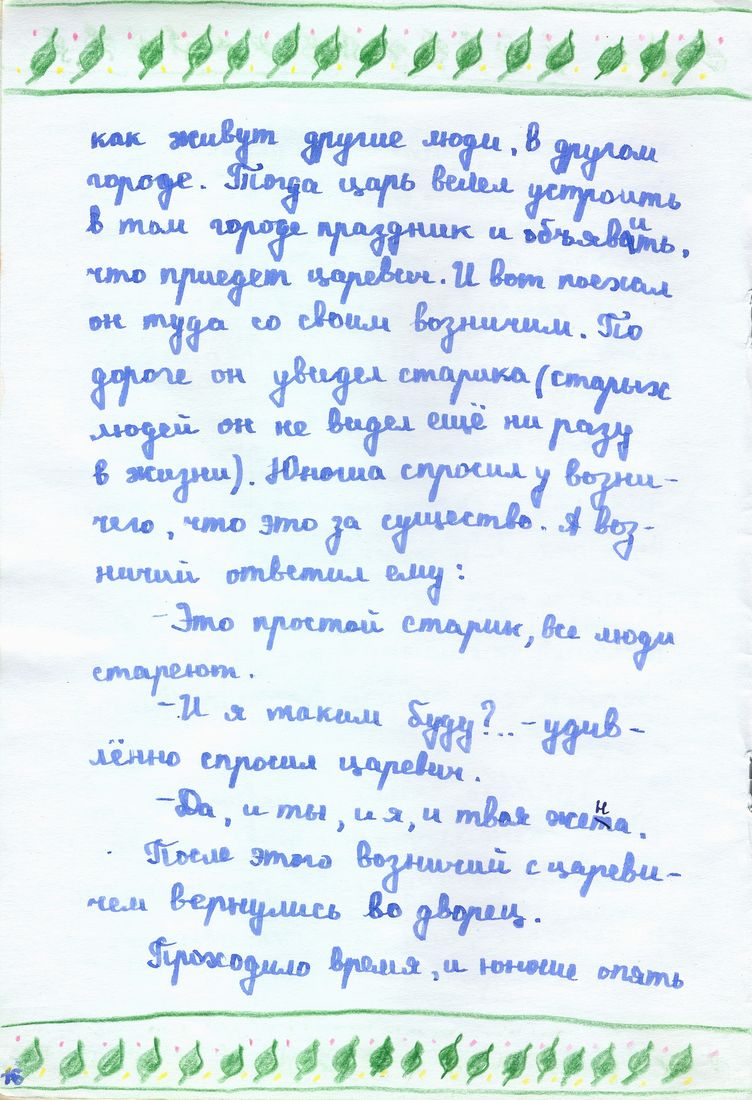 как живут другие люди, в другом
городе. Тогда царь велел устроить
в том городе праздник и объявить,
что приедет царевич. И вот поехал
он туда со своим возничим. По
дороге он увидел старика (старых
людей он не видел ещё ни разу
в жизни). Юноша спросил у возни-
чего, что это за существо. А воз-
ничий ответил ему:
- Это простой старик, все люди
стареют.
- И я таким буду?.. - удив-
лённо спросил царевич.
- Да, и ты, и я, и твоя жена.
После этого возничий с цареви-
чем вернулись во дворец.
Проходило время, и юноше опять
16